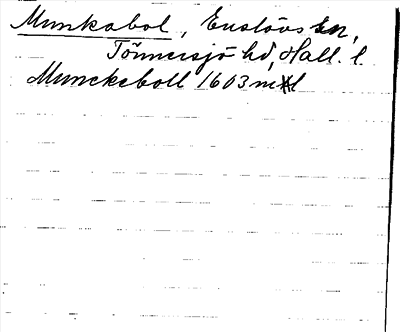 Munkabol, Enslövs sn,
Tönnersjö hd, Hall. l.
Munckeboll 1603 mtl